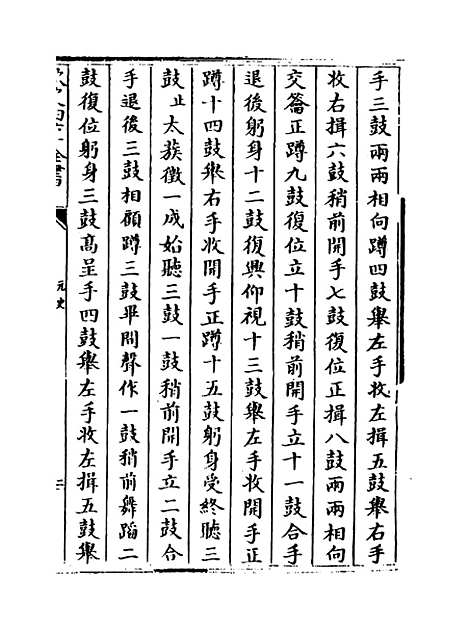 手三鼓兩兩相向蹲四鼓舉左手收左揖五鼓舉右手
收右揖六鼓稍前開手七鼓復位正揖八鼓兩兩相向
交籥正蹲九鼓復位立十鼓稍前開手立十一鼓合手
退後躬身十二鼓復興仰視十三鼓舉左手收開手正
蹲十四鼓舉右手收開手正蹲十五鼓躬身受終聽三
鼓止太蔟徵一成始聽三鼓一鼓稍前開手立二鼓合
手退後三鼓相顧蹲三鼓畢間聲作一鼓稍前舞蹈二
鼓復位躬身三鼓高呈手四鼓舉左手收左揖五鼓舉
元史